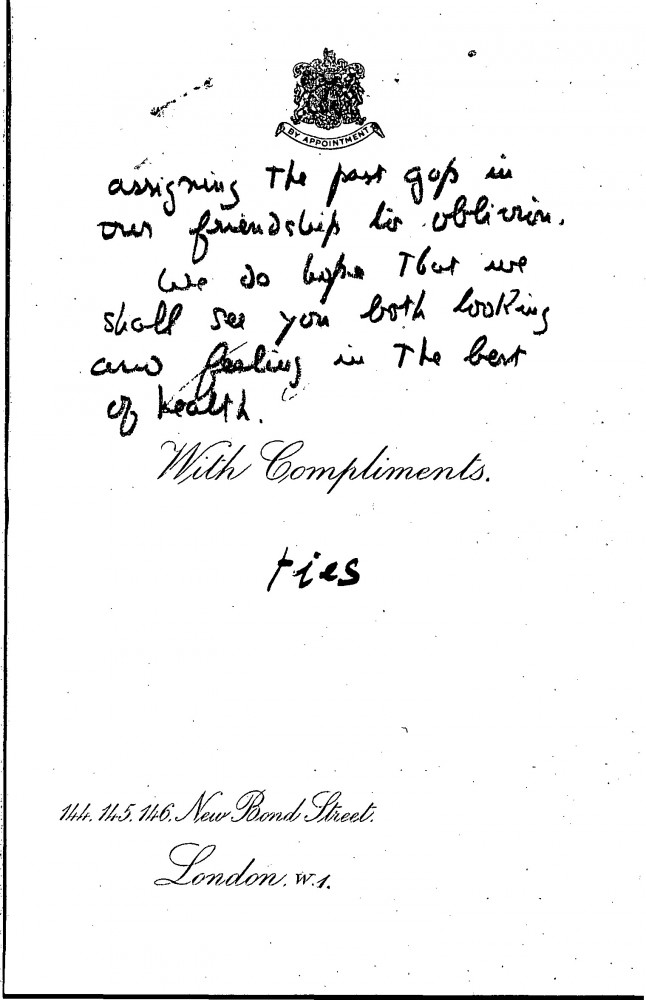 BY APPOINTMENT
assigning the past gap in
our friendship to oblivion.
We do hope that we
shall see you both looking
and feeling in the best
of health.
With Compliments.
ties
144. 145. 146. New Bond Street.
London. W.1.